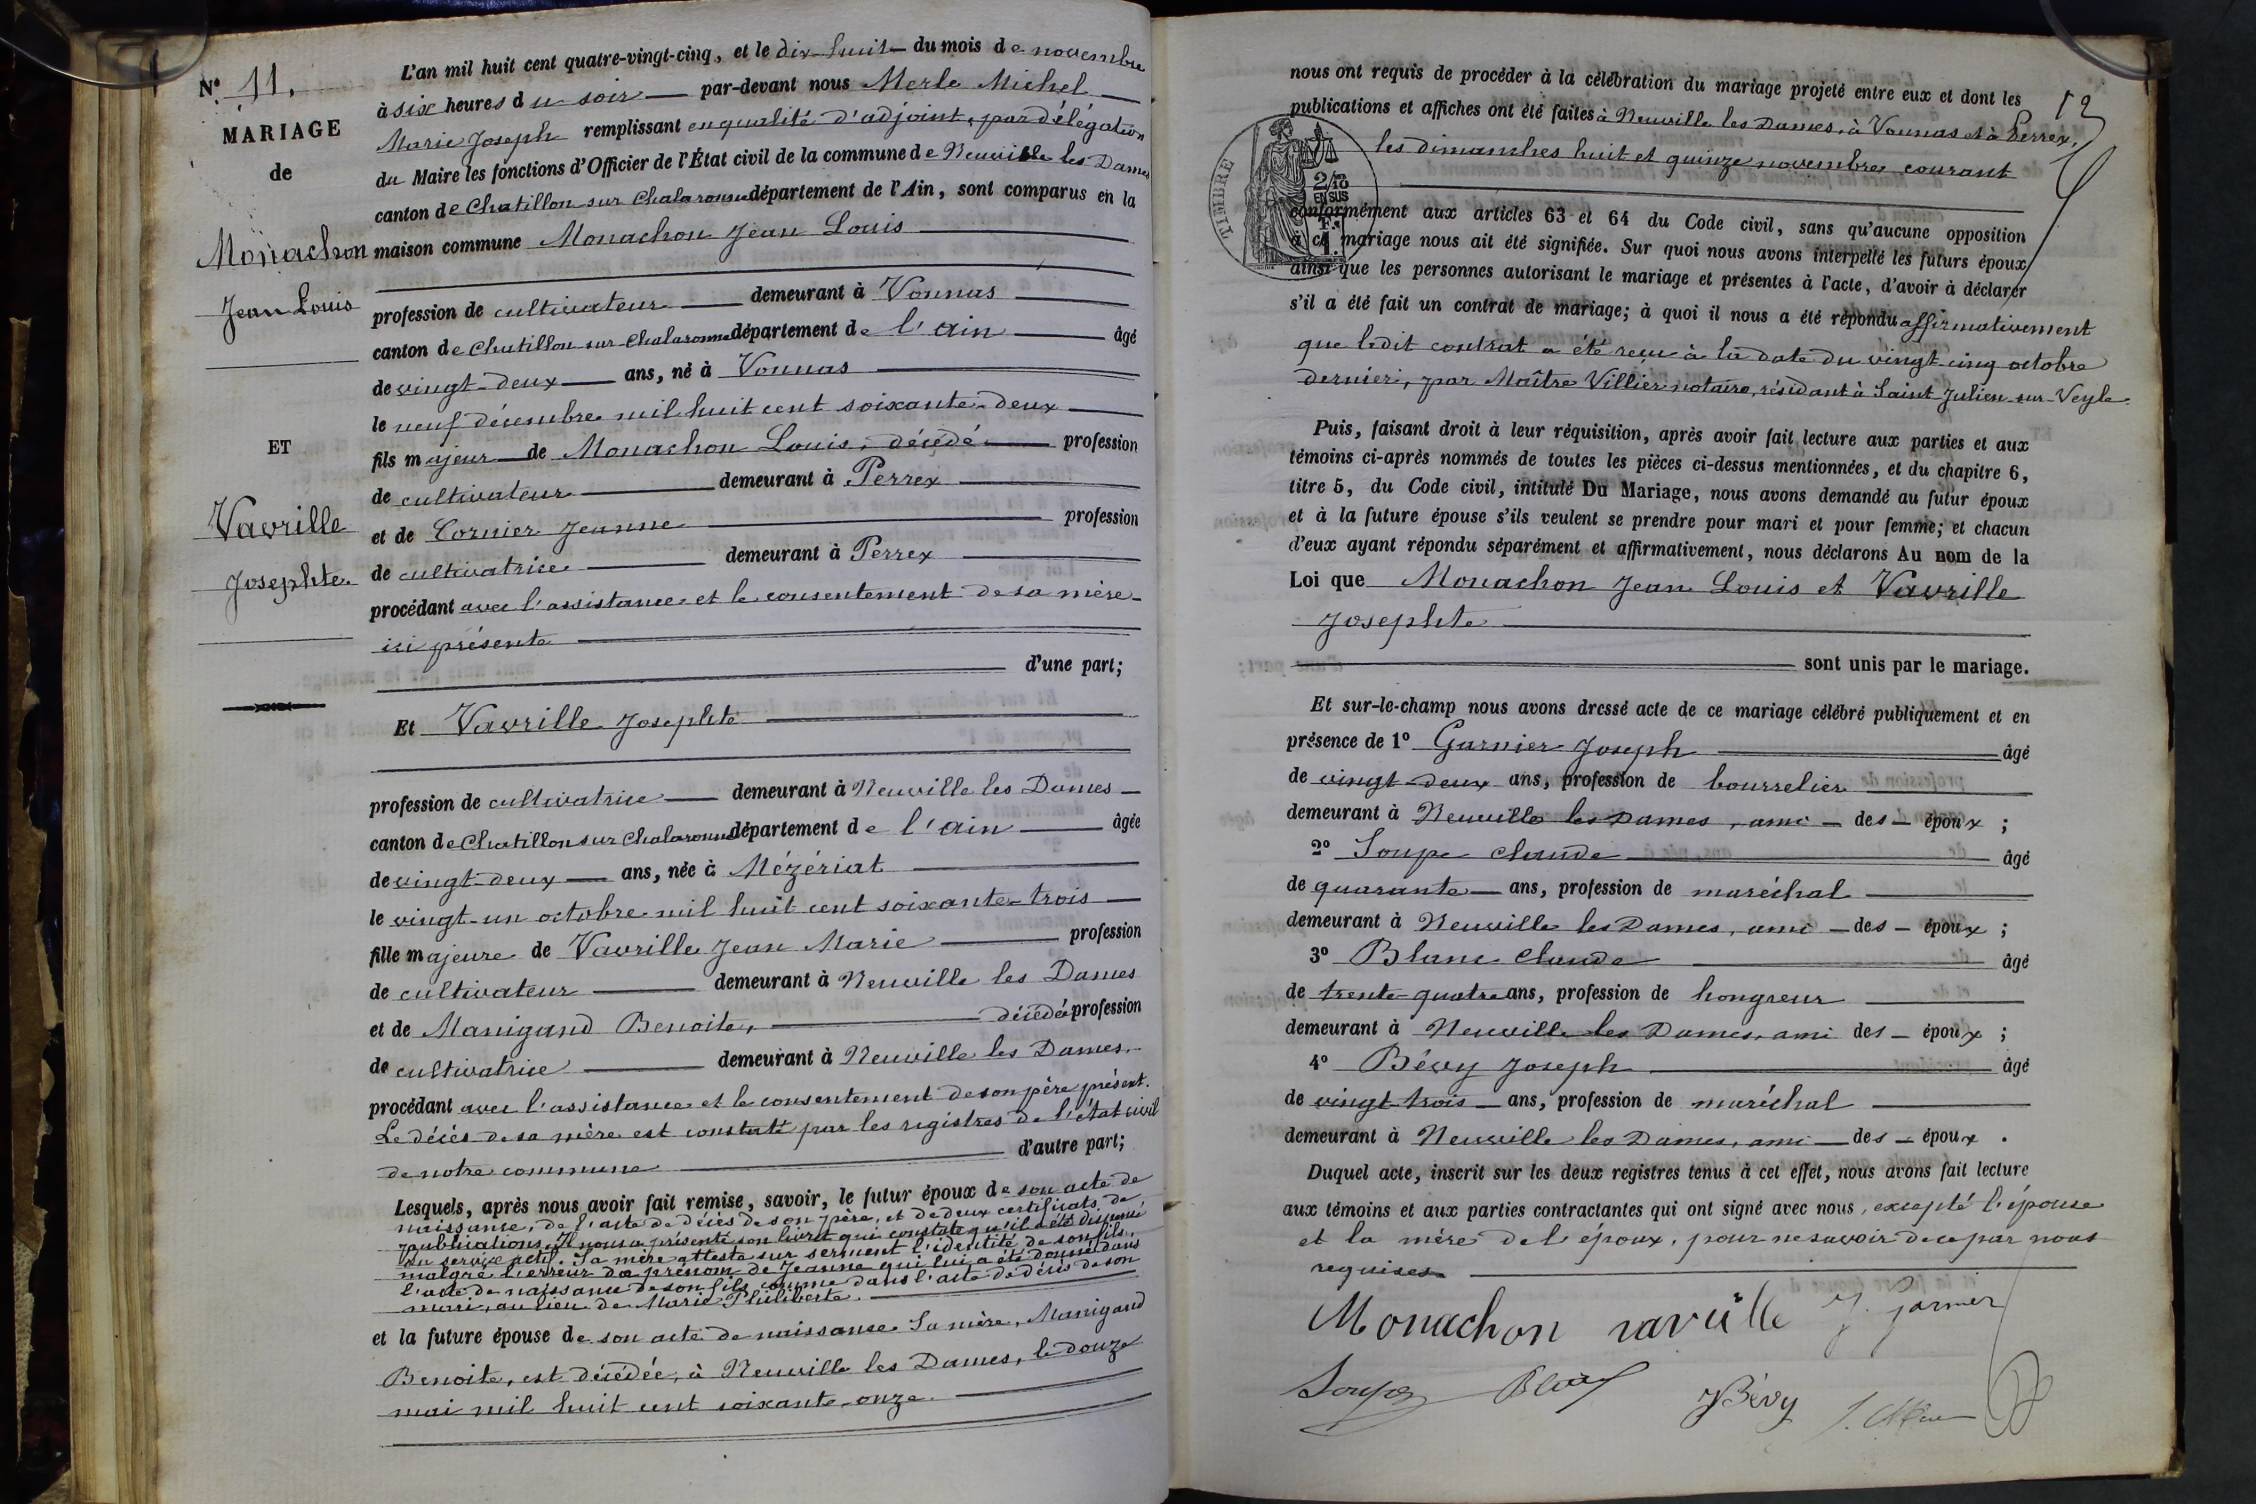 N° 11.
MARIAGE
de
Monachon
Jean Louis
ET
Vavrille
Josephte.
L'an mil huit cent quatre-vingt-cinq, et le dix-huit du mois de novembre
à six heures du soir par-devant nous Merle Michel
Marie Joseph remplissant en qualité d'adjoint, par délégation
du Maire les fonctions d'Officier de l'État civil de la commune de Neuville les Dames
canton de Chatillon sur Chalaronne département de l'Ain, sont comparus en la
maison commune Monachon Jean Louis
profession de cultivateur demeurant à Vonnas
canton de Chatillon sur Chalaronne département de l'ain âgé
de vingt-deux ans, né à Vonnas
le neuf décembre mil huit cent soixante-deux
fils majeur de Monachon Louis, décédé profession
de cultivateur demeurant à Perrex
et de Cornier Jeanne profession
de cultivatrice demeurant à Perrex
procédant avec l'assistance et le consentement de sa mère
ici présente
d'une part;
Et Vavrille Josephte
profession de cultivatrice demeurant à Neuville les Dames
canton de Chatillon sur Chalaronne département de l'ain âgée
de vingt-deux ans, née à Mézériat
le vingt-un octobre mil huit cent soixante-trois
fille majeure de Vavrille Jean Marie profession
de cultivateur demeurant à Neuville les Dames
et de Manigand Benoite, décédée profession
de cultivatrice demeurant à Neuville les Dames.
procédant avec l'assistance et le consentement de son père présent.
Le décès de sa mère est constaté par les registres de l'état civil
de notre commune d'autre part;
Lesquels, après nous avoir fait remise, savoir, le futur époux de son acte de
naissance, de l'acte de décès de son père, et de deux certificats de
publications. Il nous a présenté son livret qui constate qu'il a été dispensé
du service actif. Sa mère atteste sur serment l'identité de son fils,
malgré l'erreur du prénom de Jeanne qui lui a été donné dans
l'acte de naissance de son fils comme dans l'acte de décès de son
mari, au lieu de Marie Philiberte.
et la future épouse de son acte de naissance Sa mère, Manigand
Benoite, est décédée, à Neuville les Dames, le douze
mai mil huit cent soixante-onze.
nous ont requis de procéder à la célébration du mariage projeté entre eux et dont les
publications et affiches ont été faites à Neuville les Dames, à Vonnas et à Perrex,
les dimanches huit et quinze novembre courant
TIMBRE
2/10
EN SUS
conformément aux articles 63 et 64 du Code civil, sans qu'aucune opposition
à ce mariage nous ait été signifiée. Sur quoi nous avons interpellé les futurs époux,
ainsi que les personnes autorisant le mariage et présentes à l'acte, d'avoir à déclarer
s'il a été fait un contrat de mariage; à quoi il nous a été répondu affirmativement
que ledit contrat a été reçu à la date du vingt-cinq octobre
dernier, par Maître Villier notaire, résidant à Saint Julien-sur-Veyle.
Puis, faisant droit à leur réquisition, après avoir fait lecture aux parties et aux
témoins ci-après nommés de toutes les pièces ci-dessus mentionnées, et du chapitre 6,
titre 5, du Code civil, intitulé Du Mariage, nous avons demandé au futur époux
et à la future épouse s'ils veulent se prendre pour mari et pour femme; et chacun
d'eux ayant répondu séparément et affirmativement, nous déclarons Au nom de la
Loi que Monachon Jean Louis et Vavrille
Josephte
sont unis par le mariage.
Et sur-le-champ nous avons dressé acte de ce mariage célébré publiquement et en
présence de 1° Garnier Joseph âgé
de vingt-deux ans, profession de bourrelier
demeurant à Neuville les Dames, ami des époux;
2° Soupe Claude âgé
de quarante ans, profession de maréchal
demeurant à Neuville les Dames, ami des époux;
3° Blanc Claude âgé
de trente-quatre ans, profession de hongreur
demeurant à Neuville les Dames, ami des époux;
4° Bévy Joseph âgé
de vingt-trois ans, profession de maréchal
demeurant à Neuville les Dames, ami des époux.
Duquel acte, inscrit sur les deux registres tenus à cet effet, nous avons fait lecture
aux témoins et aux parties contractantes qui ont signé avec nous, excepté l'épouse
et la mère de l'époux, pour ne savoir de ce par nous
requises
Monachon vavrille J. Garnier
Soupe Blanc JBévy